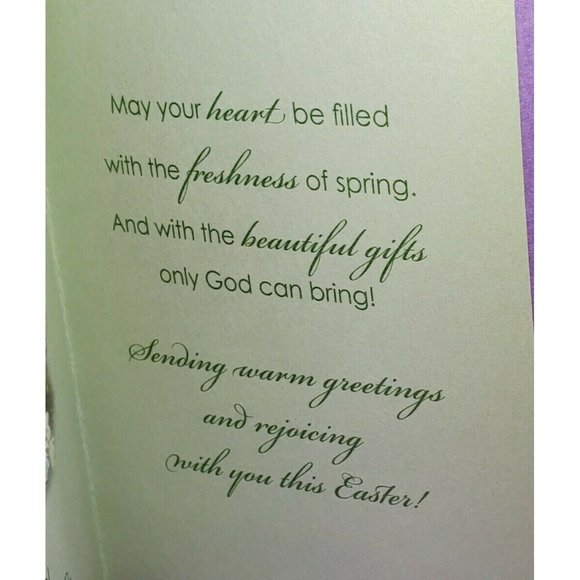 May your heart be filled
with the freshness of spring.
And with the beautiful gifts
only God can bring!
Sending warm greetings
and rejoicing
with you this Easter!